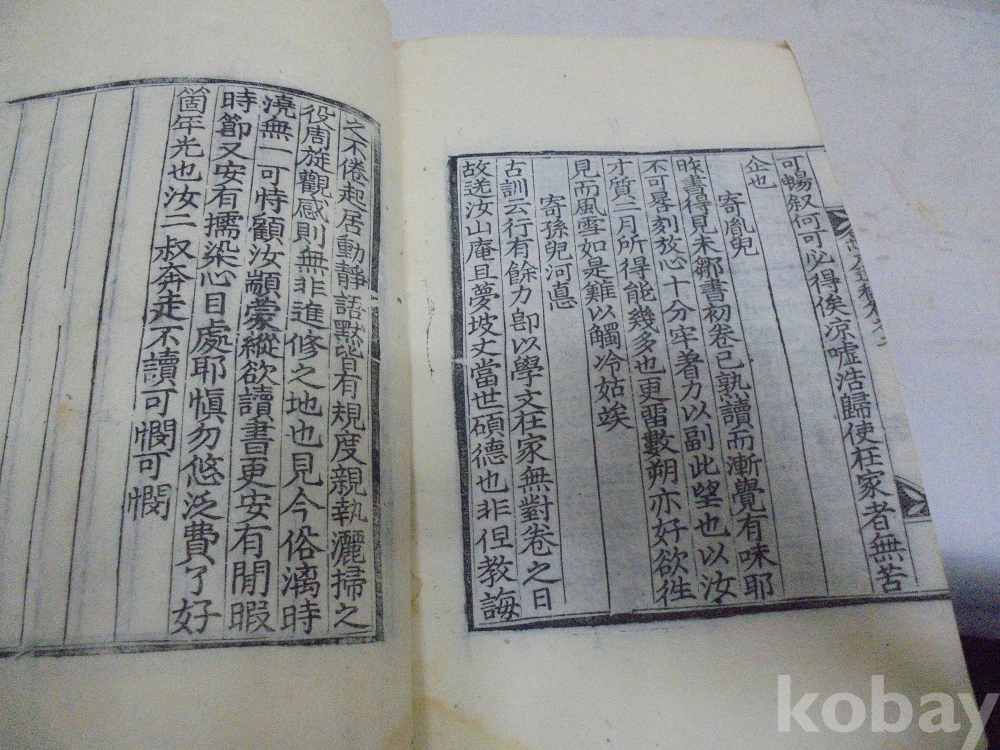 可暢叙何可必得俟凉噓浩歸使在家者無苦
企也
寄胤兒
昨書得見未鄒書初卷已熟讀而漸覺有味耶
不可晷刻放心十分牢着力以副此望也以汝
才質二月所得能幾多也更留數朔亦好欲徃
見而風雪如是難以觸冷姑竢
寄孫兒河悳
古訓云行有餘力卽以學文在家無對卷之日
故送汝山庵且夢坡丈當世碩德也非但教誨
之不倦起居動靜語默皆有規度親執灑掃之
役周旋觀感則無非進修之地也見今俗漓時
澆無一可恃顧汝顓蒙縱欲讀書更安有閒暇
時節又安有擩染心目處耶愼勿悠泛費了好
箇年光也汝二叔奔走不讀可憫可憫
kobay